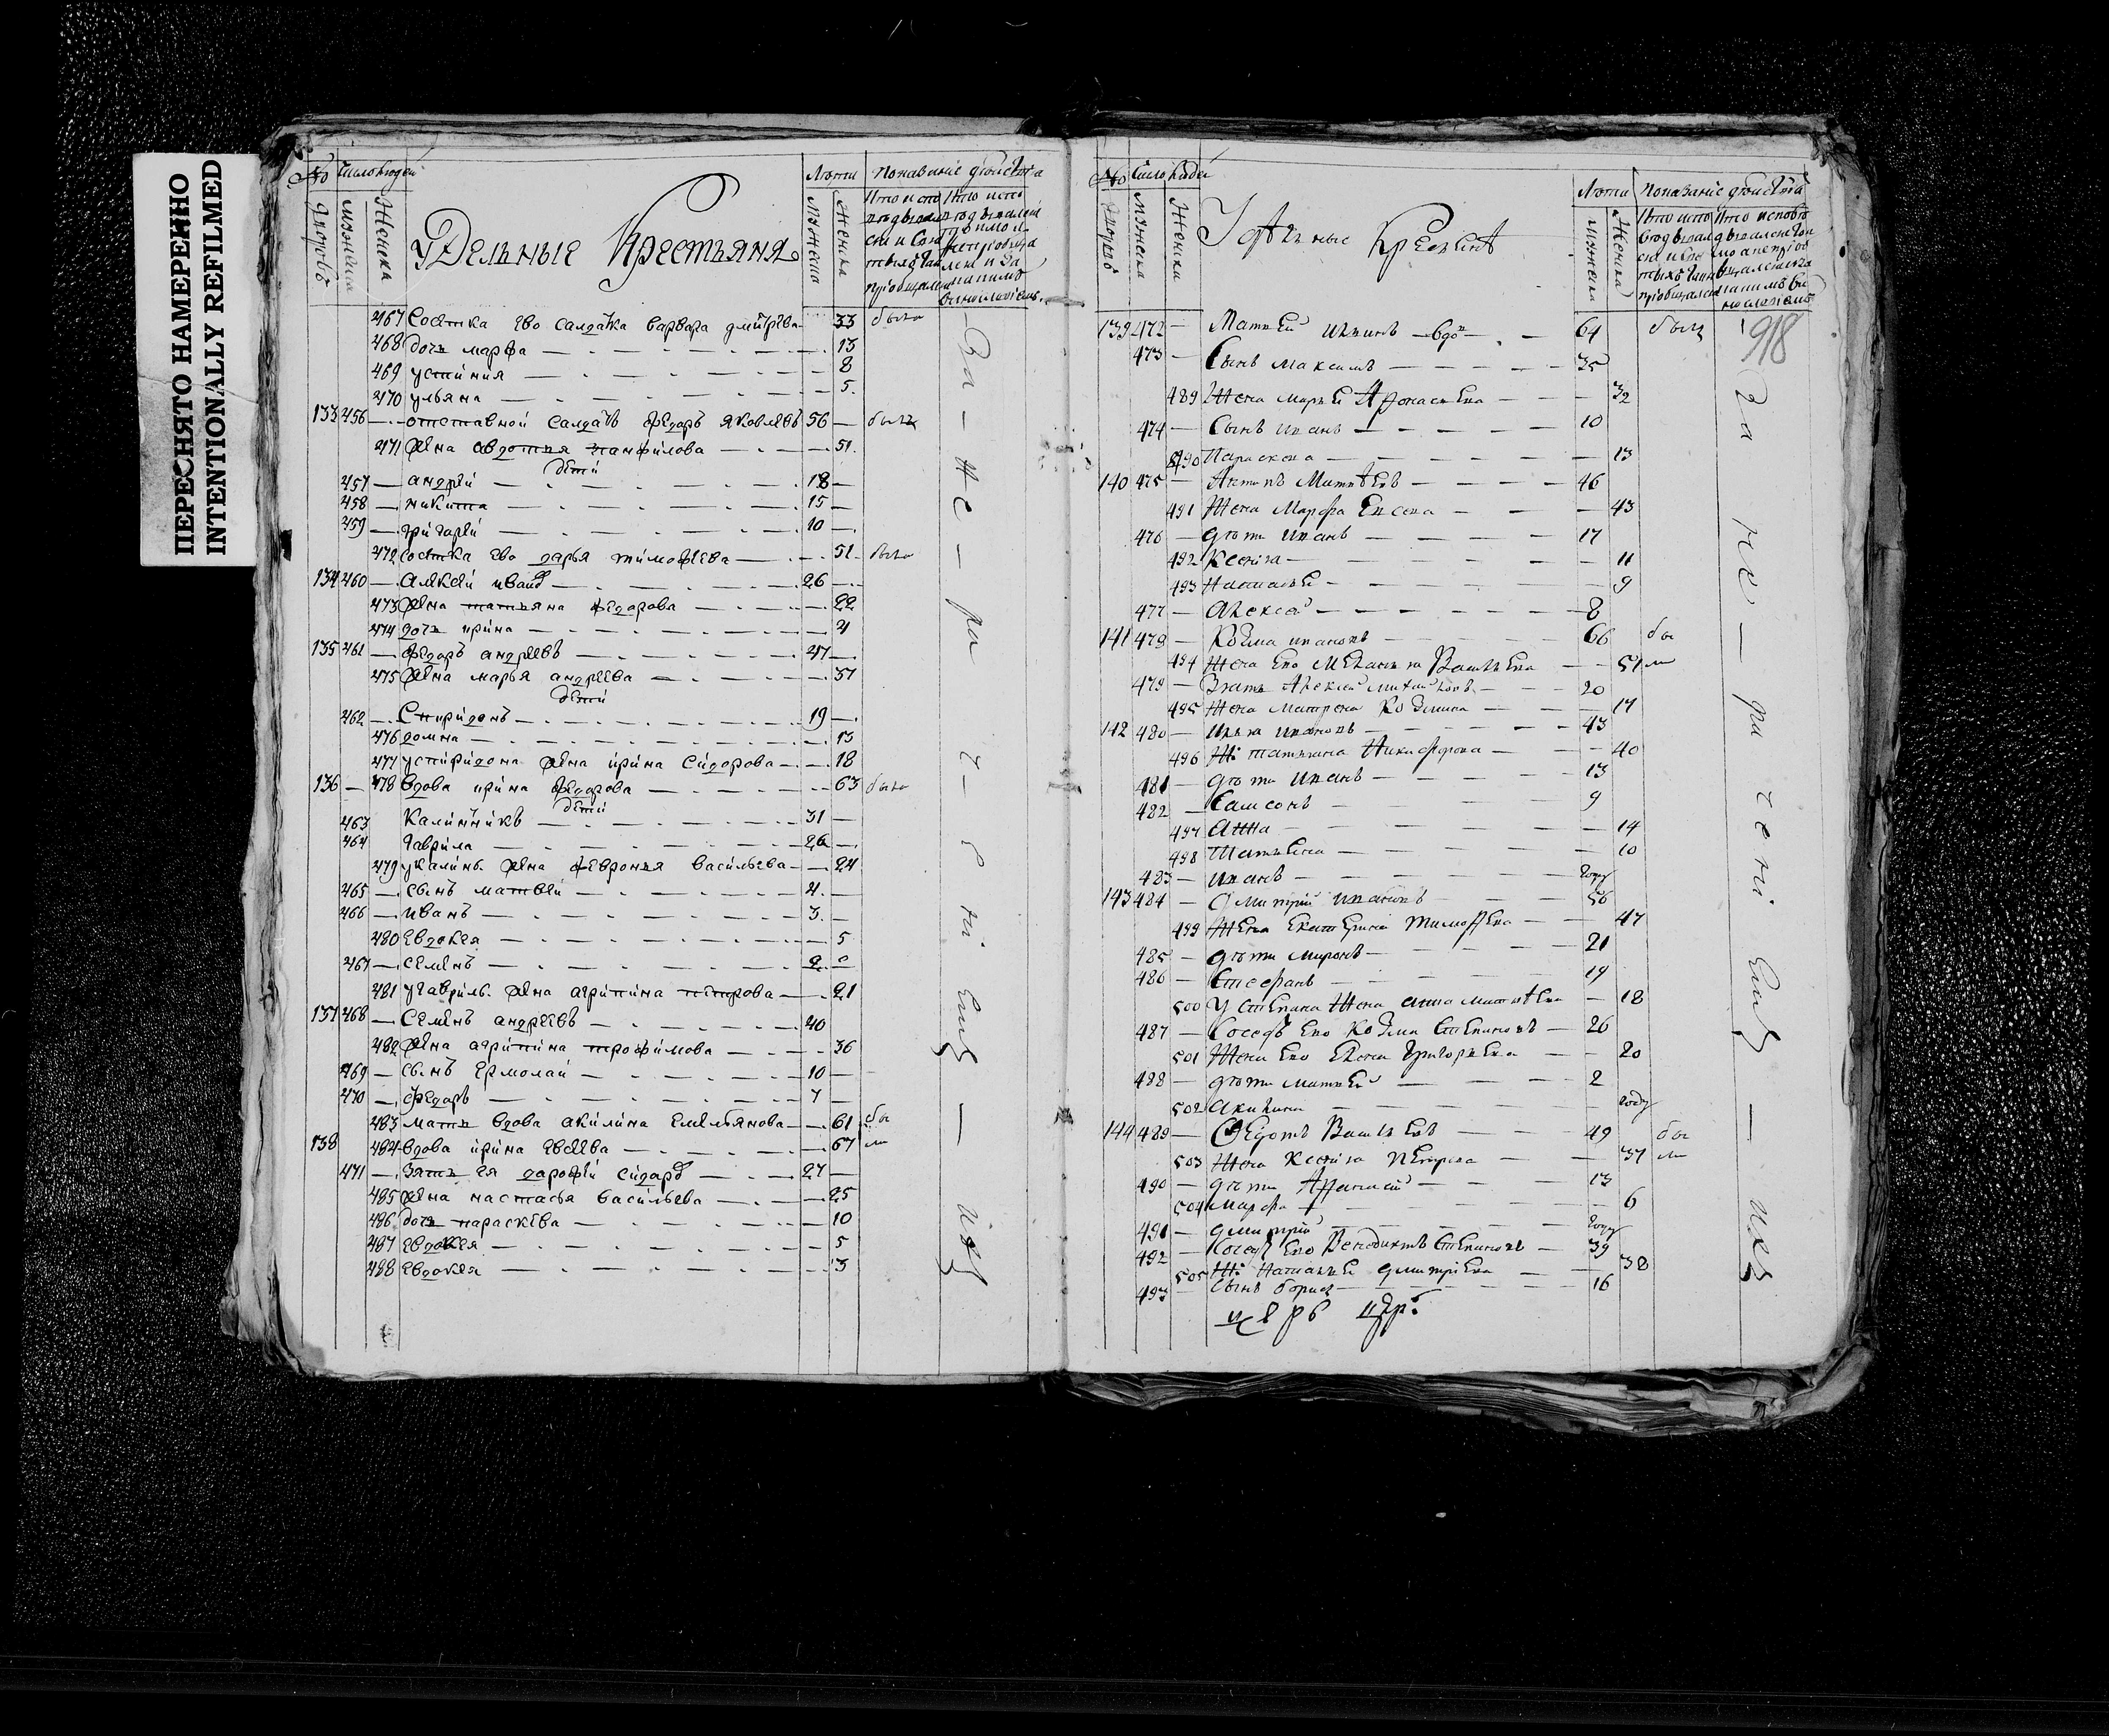 ПЕРЕСНЯТО НАМЕРЕННО
INTENTIONALLY REFILMED
№ Число людей Лѣта Показаніе дѣйства
дворовъ Мужеска Женска Удельные Крестьяня Мужеска Женска
467 Сосѣтка ево салдатка варвара дмитрѣва 33 была
468 дочь марфа 13
469 устиния 8
470 ульяна 5
133 456 отставной салдатъ федаръ яковлевъ 56 былъ
471 жена авдотья панфилова 51
дети
457 андрей 18
458 никита 15
459 григорей 10
472 сосѣтка ево дарья тимофеева 51 была
134 460 алѣксей иванов 26
473 жена татьяна федорова 22
474 дочь ирина 4
135 461 федаръ андреевъ 47
475 жена марья андреева 37
дети
462 Спиридонъ 19
476 домна 13
477 успиридона жена ирина сидорова 18
136 478 вдова ирина федорова 63 была
дети
463 Калинникъ 31
464 гаврила 26
479 укалин. жена февронья васильева 24
465 сынъ матвей 4
466 иванъ 3
480 евдокея 5
467 семенъ 2
481 угаврил. жена агрипина петрова 21
137 468 Семенъ андреевъ 40
482 жена агрипина трофимова 36
469 сынъ ермолай 10
470 федаръ 7
483 мать вдова акилина емельянова 61 бы
138 484 вдова ирина евсеева 67 ли
471 зять ея дарофей сидаров 27
485 жена настасья васильева 25
486 дочь параскева 10
487 евдокея 5
488 евдокея 3
За не ра ч е ні емъ ихъ
№ Число людей Лѣта Показаніе дѣйства
дворовъ Мужеска Женска Удѣльные Крестьяне Мужеска Женска
918
139 472 Матвей вдо 64 былъ
473 Сынъ Максимъ 35
489 Жена марья Афонасьева 32
474 Сынъ иванъ 10
490 Параскева 13
140 475 Антипъ Матвѣевъ 46
491 Жена Марфа 43
476 дѣти иванъ 17
492 Ксенія 11
493 Наталья 9
477 Алексей 8
141 479 Козма ивановъ 66 бы
494 Жена ево Меланья Васильева 51 ли
479 Зять Алексей михайловъ 20
495 Жена Матрена Козмина 17
142 480 Илья ивановъ 43
496 Ж: татьяна Никифорова 40
481 дѣти иванъ 13
482 Самсонъ 9
497 Анна 14
498 Татьяна 10
483 иванъ году
143 484 дмитрій ивановъ 56
499 Жена Екатерина тимофеева 47
485 дѣти миронъ 21
486 Стефанъ 19
500 У степана Жена анна матвѣева 18
487 Соседъ ево Козма степановъ 26
501 Жена ево Елена Григорьева 20
488 дѣти матвей 2
502 Акилина году
144 489 Федотъ Васильевъ 49 бы
503 Жена Ксенія Петрова 37 ли
490 дѣти Афанасій 13
504 Марфа 6
491 дмитрій году
492 Соседъ ево Венедиктъ степановъ 39
505 Ж: Наталья дмитріева 38
493 Сынъ борисъ 16
За не ра чені емъ ихъ